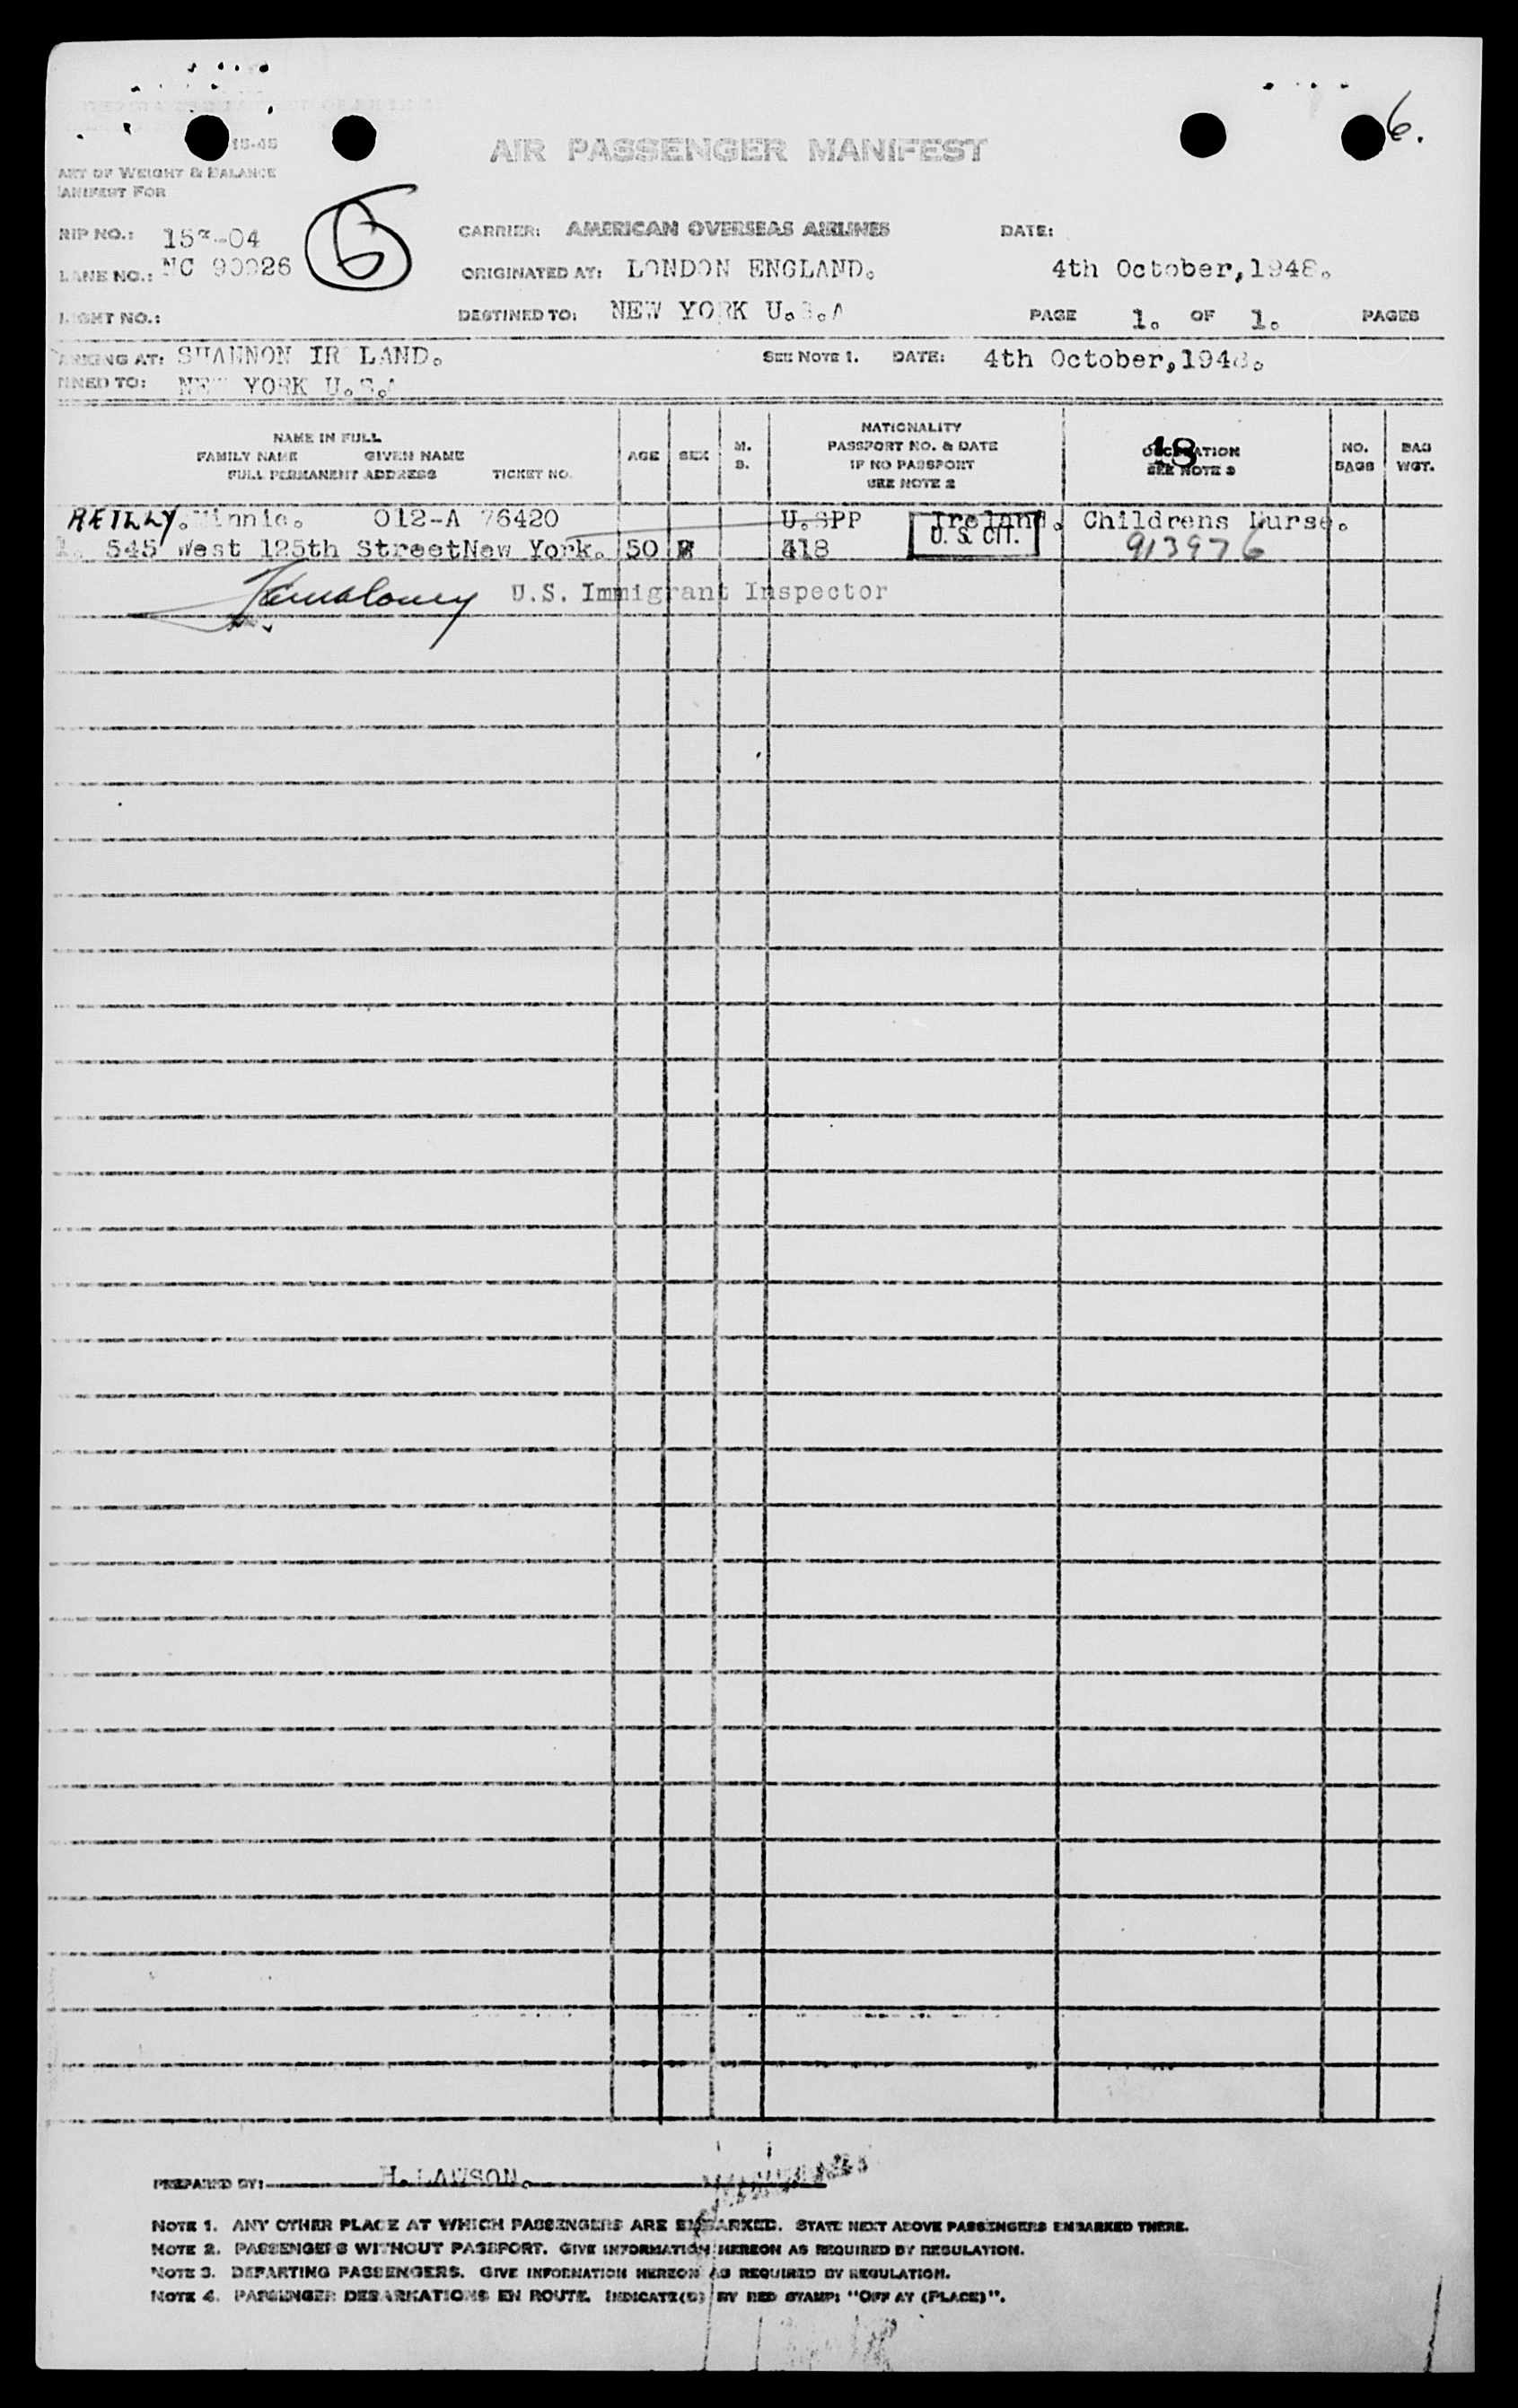 6.
15-45
AIR PASSENGER MANIFEST
ART OF WEIGHT & BALANCE
ANIFEST FOR
6
RIP NO.: -04 CARRIER: AMERICAN OVERSEAS AIRLINES DATE:
LANE NO.: NC 90926 ORIGINATED AT: LONDON ENGLAND. 4th October,1948.
LIGHT NO.: DESTINED TO: NEW YORK U.S.A PAGE 1. OF 1. PAGES
ARKING AT: SHANNON IR LAND. SEE NOTE 1. DATE: 4th October,1948.
INED TO: NEW YORK U.S.A
NAME IN FULL
FAMILY NAME GIVEN NAME
FULL PERMANENT ADDRESS TICKET NO.
AGE SEX M. S.
NATIONALITY
PASSPORT NO. & DATE
IF NO PASSPORT
SEE NOTE 2
18
OCCUPATION
SEE NOTE 3
NO. BAGS BAG WGT.
REILLY. Minnie. 012-A 76420 U.SPP Ireland. Childrens Nurse.
1. 545 West 125th StreetNew York. 50 F 418 U. S. CIT. 913976
U.S. Immigrant Inspector
PREPARED BY: H.LAWSON.
NOTE 1. ANY OTHER PLACE AT WHICH PASSENGERS ARE EMBARKED. STATE NEXT ABOVE PASSENGERS EMBARKED THERE.
NOTE 2. PASSENGERS WITHOUT PASSPORT. GIVE INFORMATION HEREON AS REQUIRED BY REGULATION.
NOTE 3. DEPARTING PASSENGERS. GIVE INFORMATION HEREON AS REQUIRED BY REGULATION.
NOTE 4. PASSENGER DEBARKATIONS EN ROUTE. INDICATE(D) BY RED STAMP: "OFF AT (PLACE)".